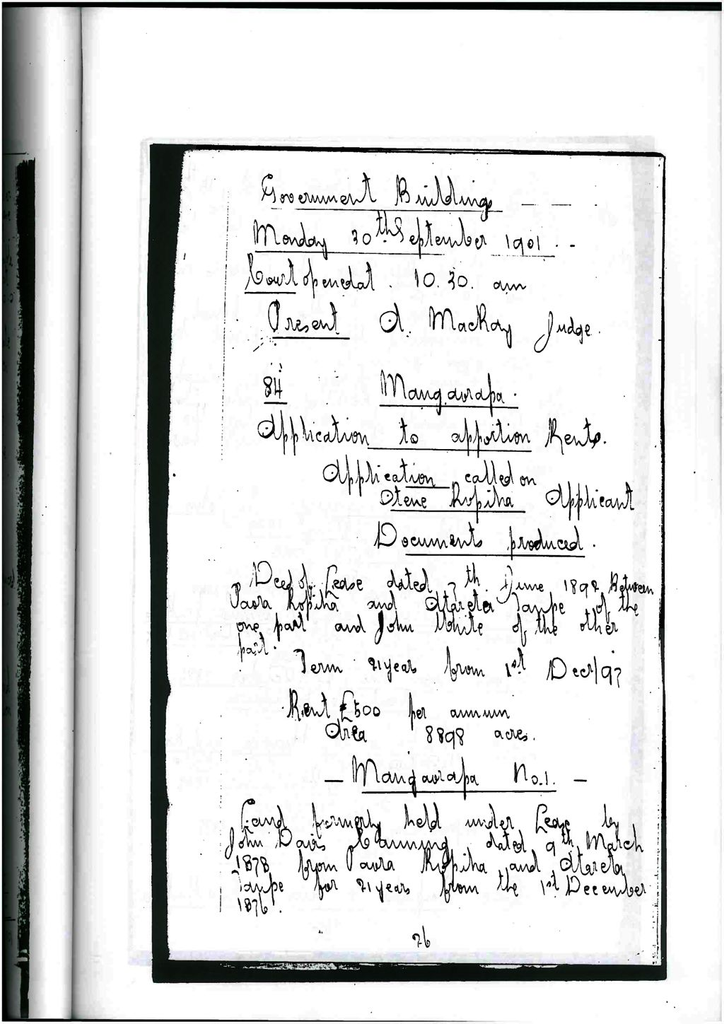 Government Buildings — —
Monday 30th September 1901 . -
Court opened at . 10.30. am
Present A. Mackay Judge.
84 Mangaorapa.
Application to apportion Rents.
Application called on
Otene Kopiha Applicant
Documents produced.
Deed of Lease dated 7th June 1898 Between
Paora Kopiha and Atareta Taupe of the
one part and John White of the other
part.
Term 21 years from 1st Decr/97
Rent £500 per annum
Area 8898 acres.
— Mangaorapa No.1. —
Land formerly held under Lease by
John Davis Canning dated 9th March
1878 from Paora Kopiha and Atareta
Taupe for 21 years from the 1st December
1876.
26